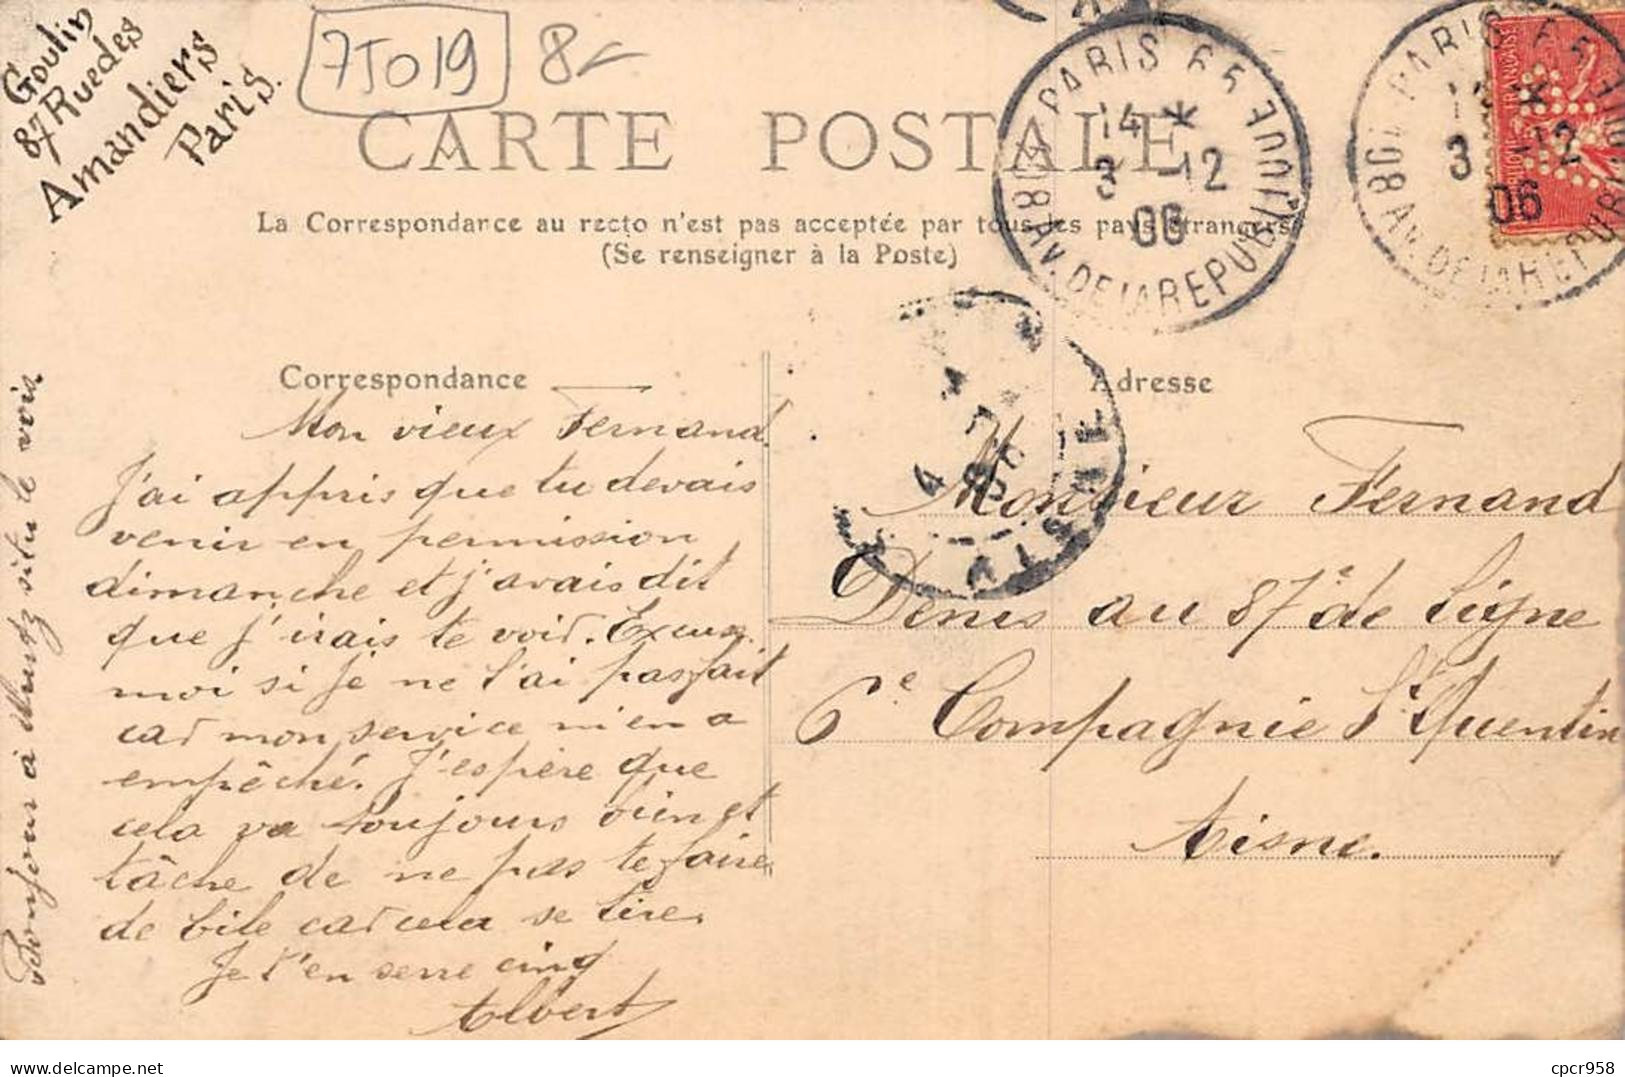 Goulin
87 Rue des
Amandiers
Paris.
7J019
8
CARTE POSTALE
La Correspondance au recto n'est pas acceptée par tous les pays étrangers
(Se renseigner à la Poste)
PARIS 65
14 *
3 -12
06
80 AV. DE LA REPUBLIQUE
PARIS 65
3 -12
06
80 AV. DE LA REPUBLIQUE
Correspondance
Mon vieux Fernand.
J'ai appris que tu devais
venir en permission
dimanche et j'avais dit
que j'irais te voir. Excuse
moi si je ne l'ai pas fait
car mon service m'en a
empêché. J'espère que
cela va toujours bien et
tâche de ne pas te faire
de bile car cela se tire.
Je t'en serre cinq
Albert
Bonjour à
si tu le vois
AISNE
Adresse
Monsieur Fernand
Denis au 87e de ligne
6e Compagnie St Quentin
Aisne.
www.delcampe.net
cpcr958